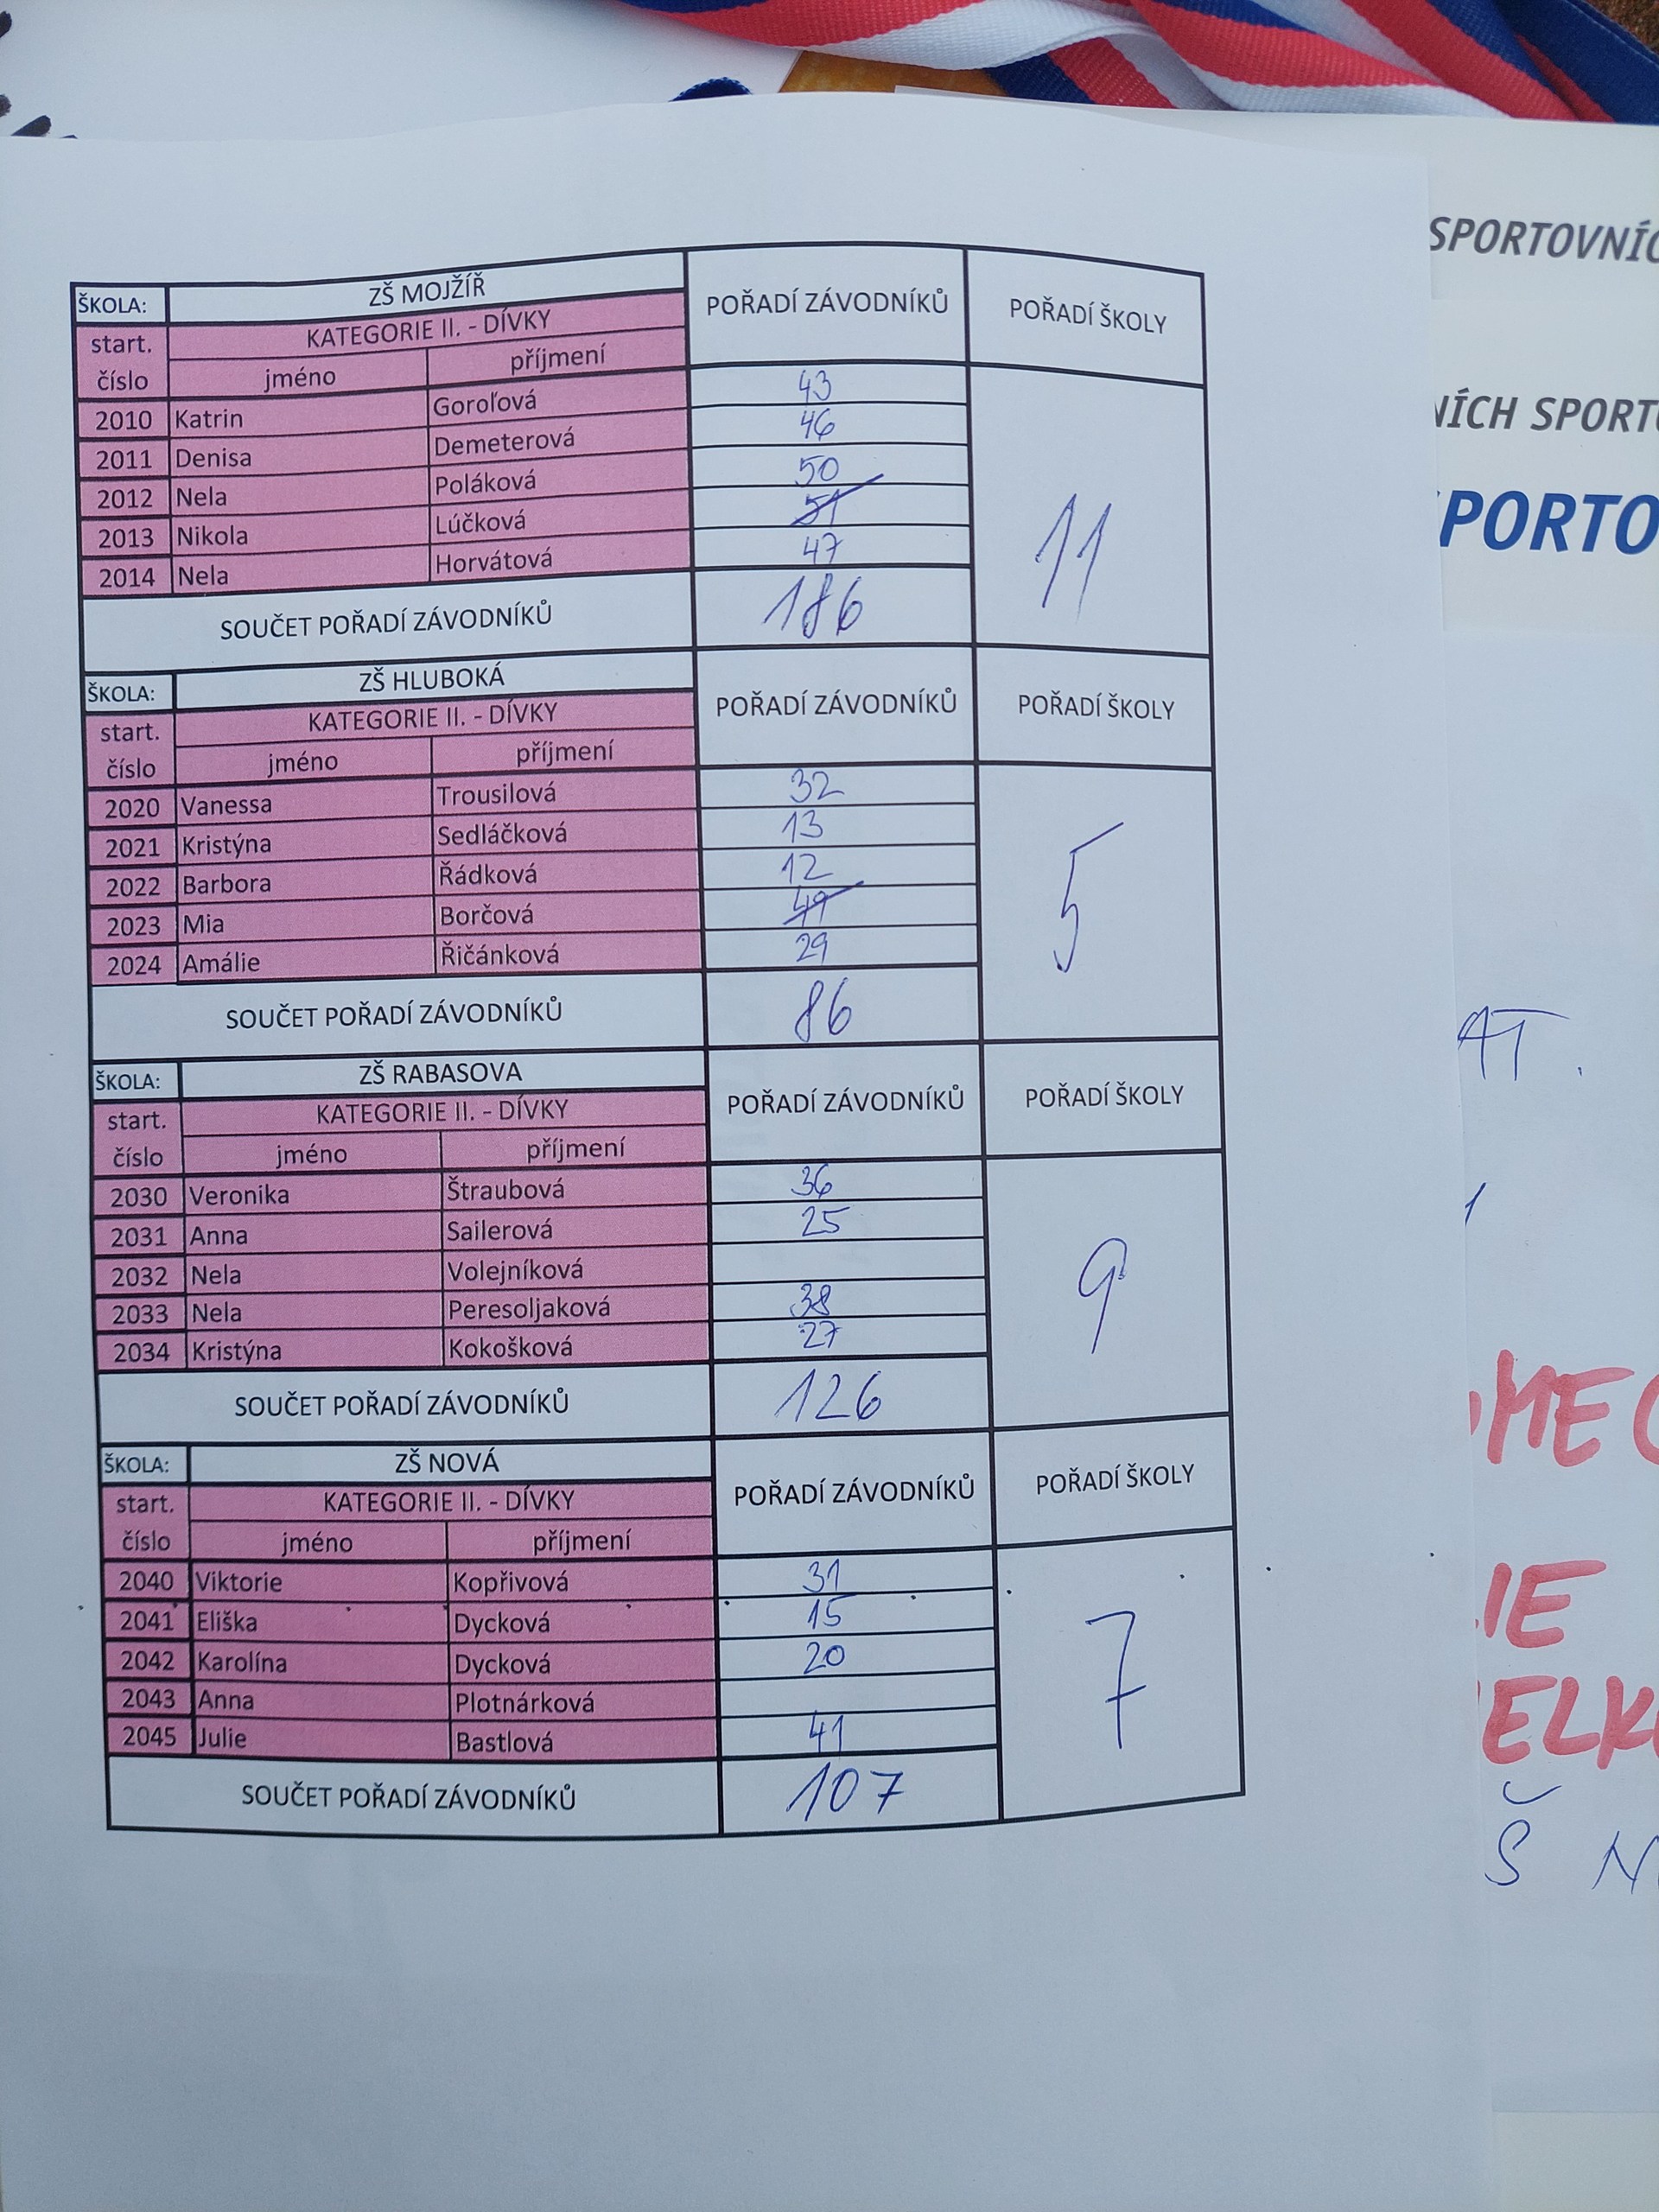 SPORTOVNÍC
NÍCH SPORTO
SPORTO
ŠKOLA: ZŠ MOJŽÍŘ POŘADÍ ZÁVODNÍKŮ POŘADÍ ŠKOLY
start. číslo KATEGORIE II. - DÍVKY
jméno příjmení
2010 Katrin Goroľová 43
2011 Denisa Demeterová 46
2012 Nela Poláková 50
2013 Nikola Lúčková 51
2014 Nela Horvátová 47
11
SOUČET POŘADÍ ZÁVODNÍKŮ 186
ŠKOLA: ZŠ HLUBOKÁ POŘADÍ ZÁVODNÍKŮ POŘADÍ ŠKOLY
start. číslo KATEGORIE II. - DÍVKY
jméno příjmení
2020 Vanessa Trousilová 32
2021 Kristýna Sedláčková 13
2022 Barbora Řádková 12
2023 Mia Borčová 49
2024 Amálie Řičánková 29
5
SOUČET POŘADÍ ZÁVODNÍKŮ 86
ŠKOLA: ZŠ RABASOVA POŘADÍ ZÁVODNÍKŮ POŘADÍ ŠKOLY
start. číslo KATEGORIE II. - DÍVKY
jméno příjmení
2030 Veronika Štraubová 36
2031 Anna Sailerová 25
2032 Nela Volejníková
2033 Nela Peresoljaková 38
2034 Kristýna Kokošková 27
9
SOUČET POŘADÍ ZÁVODNÍKŮ 126
ŠKOLA: ZŠ NOVÁ POŘADÍ ZÁVODNÍKŮ POŘADÍ ŠKOLY
start. číslo KATEGORIE II. - DÍVKY
jméno příjmení
2040 Viktorie Kopřivová 31
2041 Eliška Dycková 15
2042 Karolína Dycková 20
2043 Anna Plotnárková
2045 Julie Bastlová 41
7
SOUČET POŘADÍ ZÁVODNÍKŮ 107
AT.
OMEC
LIE
ELK
Š N